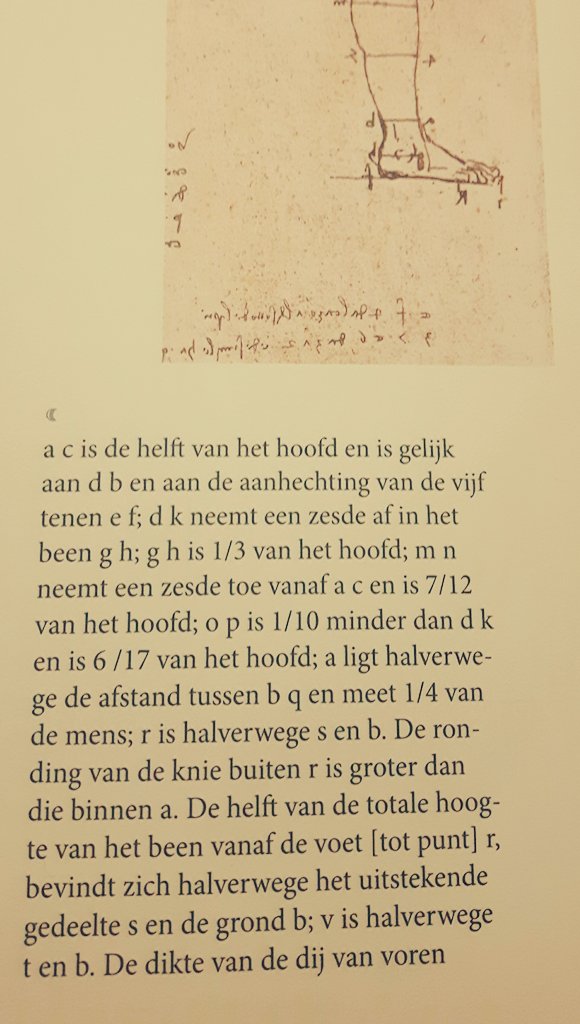 a c is de helft van het hoofd en is gelijk
aan d b en aan de aanhechting van de vijf
tenen e f; d k neemt een zesde af in het
been g h; g h is 1/3 van het hoofd; m n
neemt een zesde toe vanaf a c en is 7/12
van het hoofd; o p is 1/10 minder dan d k
en is 6 /17 van het hoofd; a ligt halverwe-
ge de afstand tussen b q en meet 1/4 van
de mens; r is halverwege s en b. De ron-
ding van de knie buiten r is groter dan
die binnen a. De helft van de totale hoog-
te van het been vanaf de voet [tot punt] r,
bevindt zich halverwege het uitstekende
gedeelte s en de grond b; v is halverwege
t en b. De dikte van de dij van voren